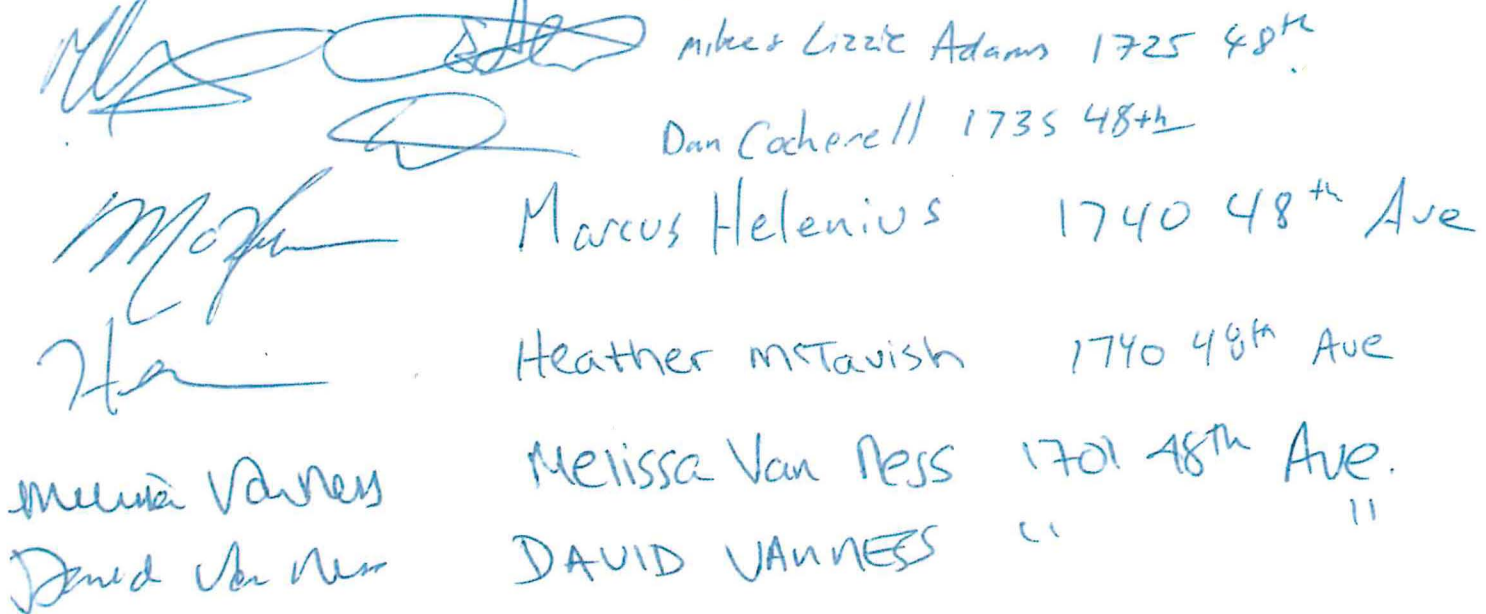 Mike & Lizzie Adams 1725 48th
Dan Cocherell 1735 48th
Marcus Helenius 1740 48th Ave
Heather McTavish 1740 48th Ave
Melissa Van Ness Melissa Van Ness 1701 48th Ave.
David Van Ness DAVID VANNESS " "